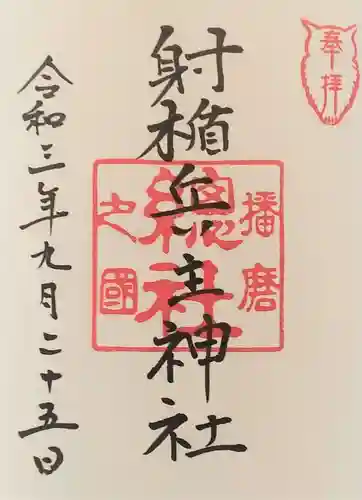 奉拝
射楯兵主神社
播磨
總社
之國
令和三年九月二十五日